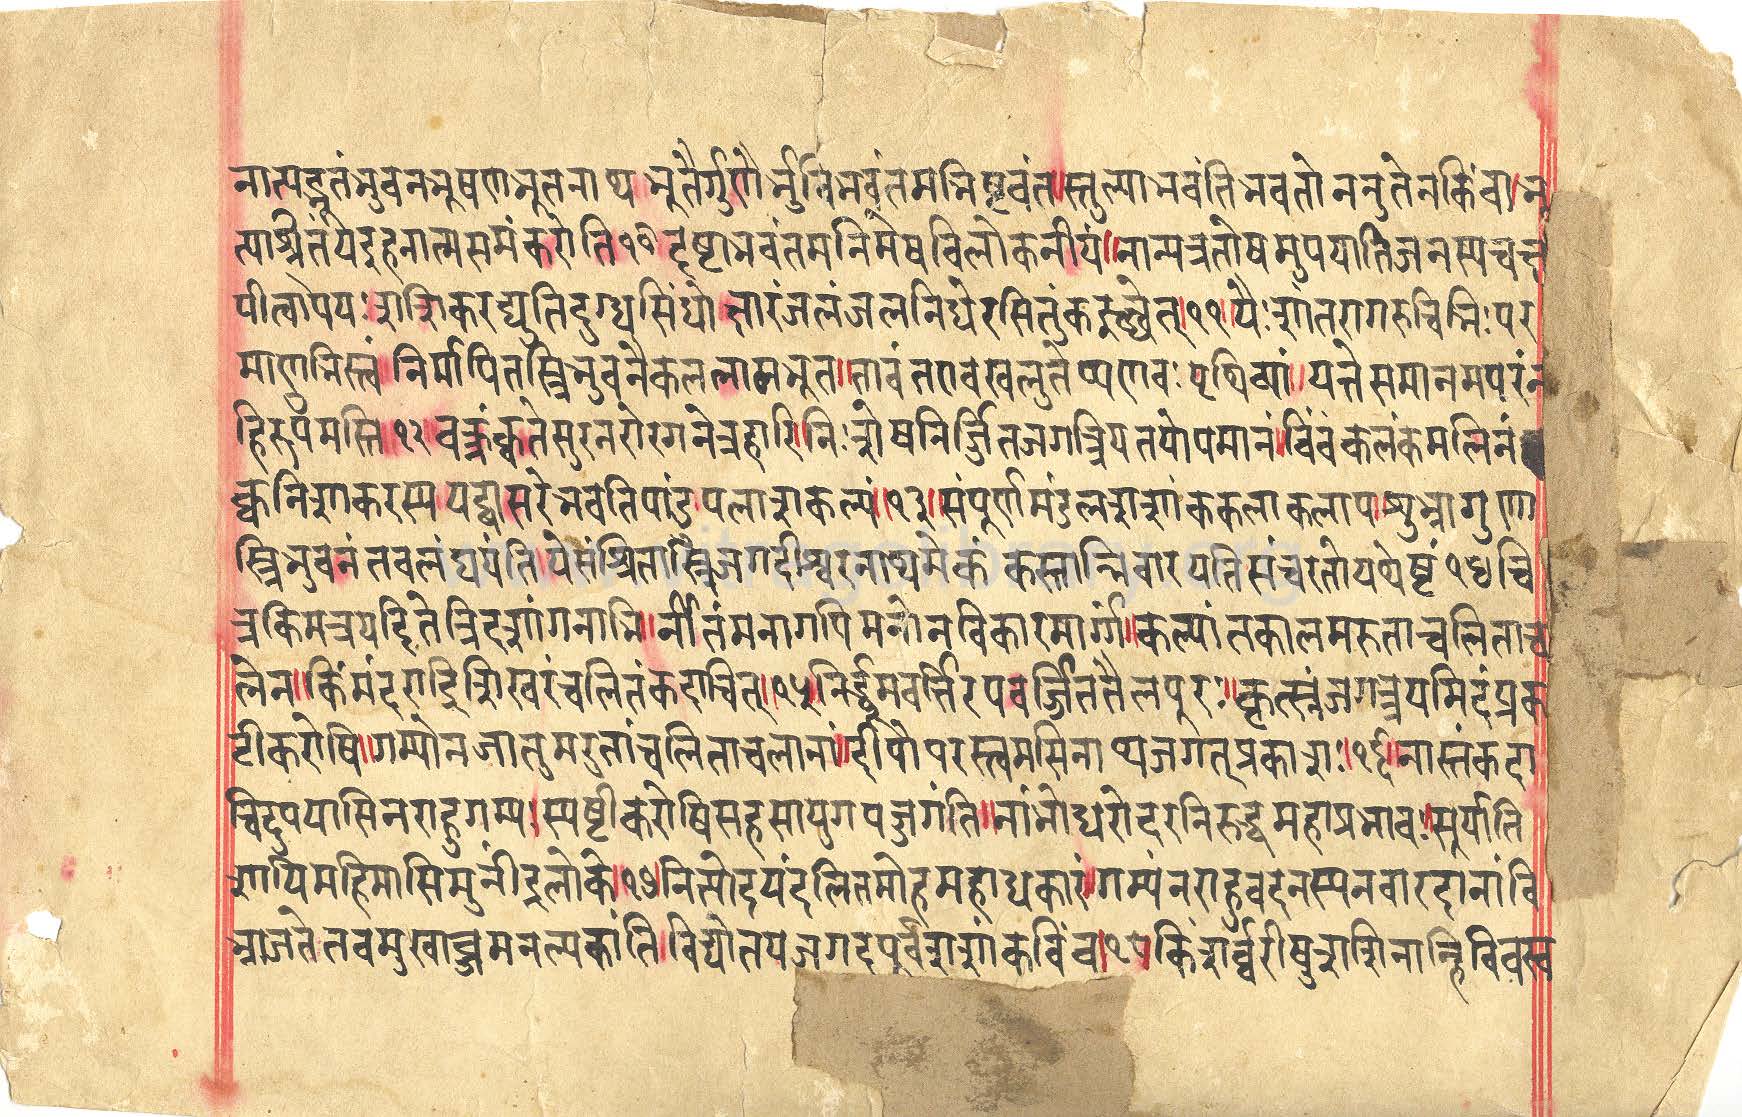 नात्पद्भूतंभुवनभूषणभूतनाथ भूतैर्गुणै र्भुविभवंतमभिष्टवंत॥स्तुल्याभवंतिभवतो ननुतेनकिंवा॥भू
त्याश्रितंयइहनात्मसमंकरोति१० दृष्ट्वाभवंतमनिमेषविलोकनीयं॥नान्यत्रतोषमुपयातिजनस्यचक्षु
पीत्वापयःशशिकरद्युतिदुग्धसिंधो क्षारंजलंजलनिधेरसितुंकइच्छेत्॥११॥यैःशांतरागरुचिभिःपर
माणुभिस्त्वं निर्मापितस्त्रिभुवनैकललामभूत॥तावंतएवखलुतेप्यणवःपृथिव्यां॥यत्तेसमानमपरंन
हिरूपमस्ति१२ वक्त्रंक्वतेसुरनरोरगनेत्रहारिनिःशेषनिर्जितजगत्त्रियतयोपमानं॥बिंबंकलंकमलिनं
क्वनिशाकरस्य यद्वासरेभवतिपांडुपलाशकल्पं॥१३॥संपूर्णमंडलशशांककलाकलाप॥शुभ्रागुणा
स्त्रिभुवनंतवलंघयंति येसंश्रितास्त्रिजगदीश्वरनाथमेकं कस्तान्निवारयतिसंचरतोयथेष्टं १४ चि
त्रकिमत्रयदितेत्रिदशांगनाभि॥र्नीतंमनागपिमनोनविकारमार्गं॥कल्पांतकालमरुताचलिताच
लेन॥किंमंदराद्रिशिखरंचलितंकदाचित्॥१५॥निर्द्धूमवर्त्तिरपवर्ज्जिततैलपुरः॥कृत्स्नंजगत्त्रयमिदंप्रक
टीकरोषि॥गम्योनजातुमरुतांचलिताचलानां॥दीपोपरस्त्वमसिनाथजगत्प्रकाशः॥१६॥नास्तंकदा
चिदुपयासिनराहुगम्य॥स्पष्टीकरोषिसहसायुगपज्जगंति॥नांभोधरोदरनिरुद्धमहाप्रभावः॥सूर्याति
शायिमहिमासिमुनींद्रलोके॥१७॥नित्योदयंदलितमोहमहांधकारं॥गम्यंनराहुवदनस्यनवारदानांवि
भ्राजतेतवमुखाब्जमनल्पकांति॥विद्योतयज्जगदपूर्वशशांकबिंब॥१८॥किंशर्व्वरीषुशशिनान्हिविवस्व